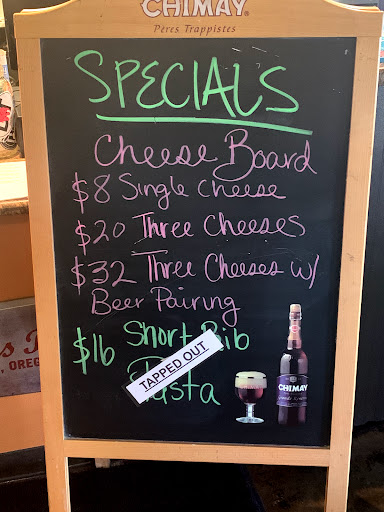 CHIMAY
Pères Trappistes
SPECIALS
Cheese Board
$8 Single cheese
$20 Three Cheeses
$32 Three Cheeses w/
Beer Pairing
$16 Short Rib
Pasta
TAPPED OUT
CHIMAY
, OREG